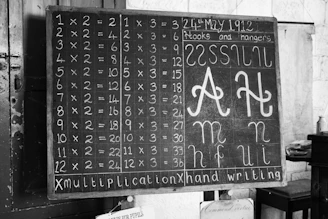 1 x 2 = 2
2 x 2 = 4
3 x 2 = 6
4 x 2 = 8
5 x 2 = 10
6 x 2 = 12
7 x 2 = 14
8 x 2 = 16
9 x 2 = 18
10 x 2 = 20
11 x 2 = 22
12 x 2 = 24
1 x 3 = 3
2 x 3 = 6
3 x 3 = 9
4 x 3 = 12
5 x 3 = 15
6 x 3 = 18
7 x 3 = 21
8 x 3 = 24
9 x 3 = 27
10 x 3 = 30
11 x 3 = 33
12 x 3 = 36
24th May 1912
Hooks and hangers
A H
m n
h f u i
x multiplication x hand writing